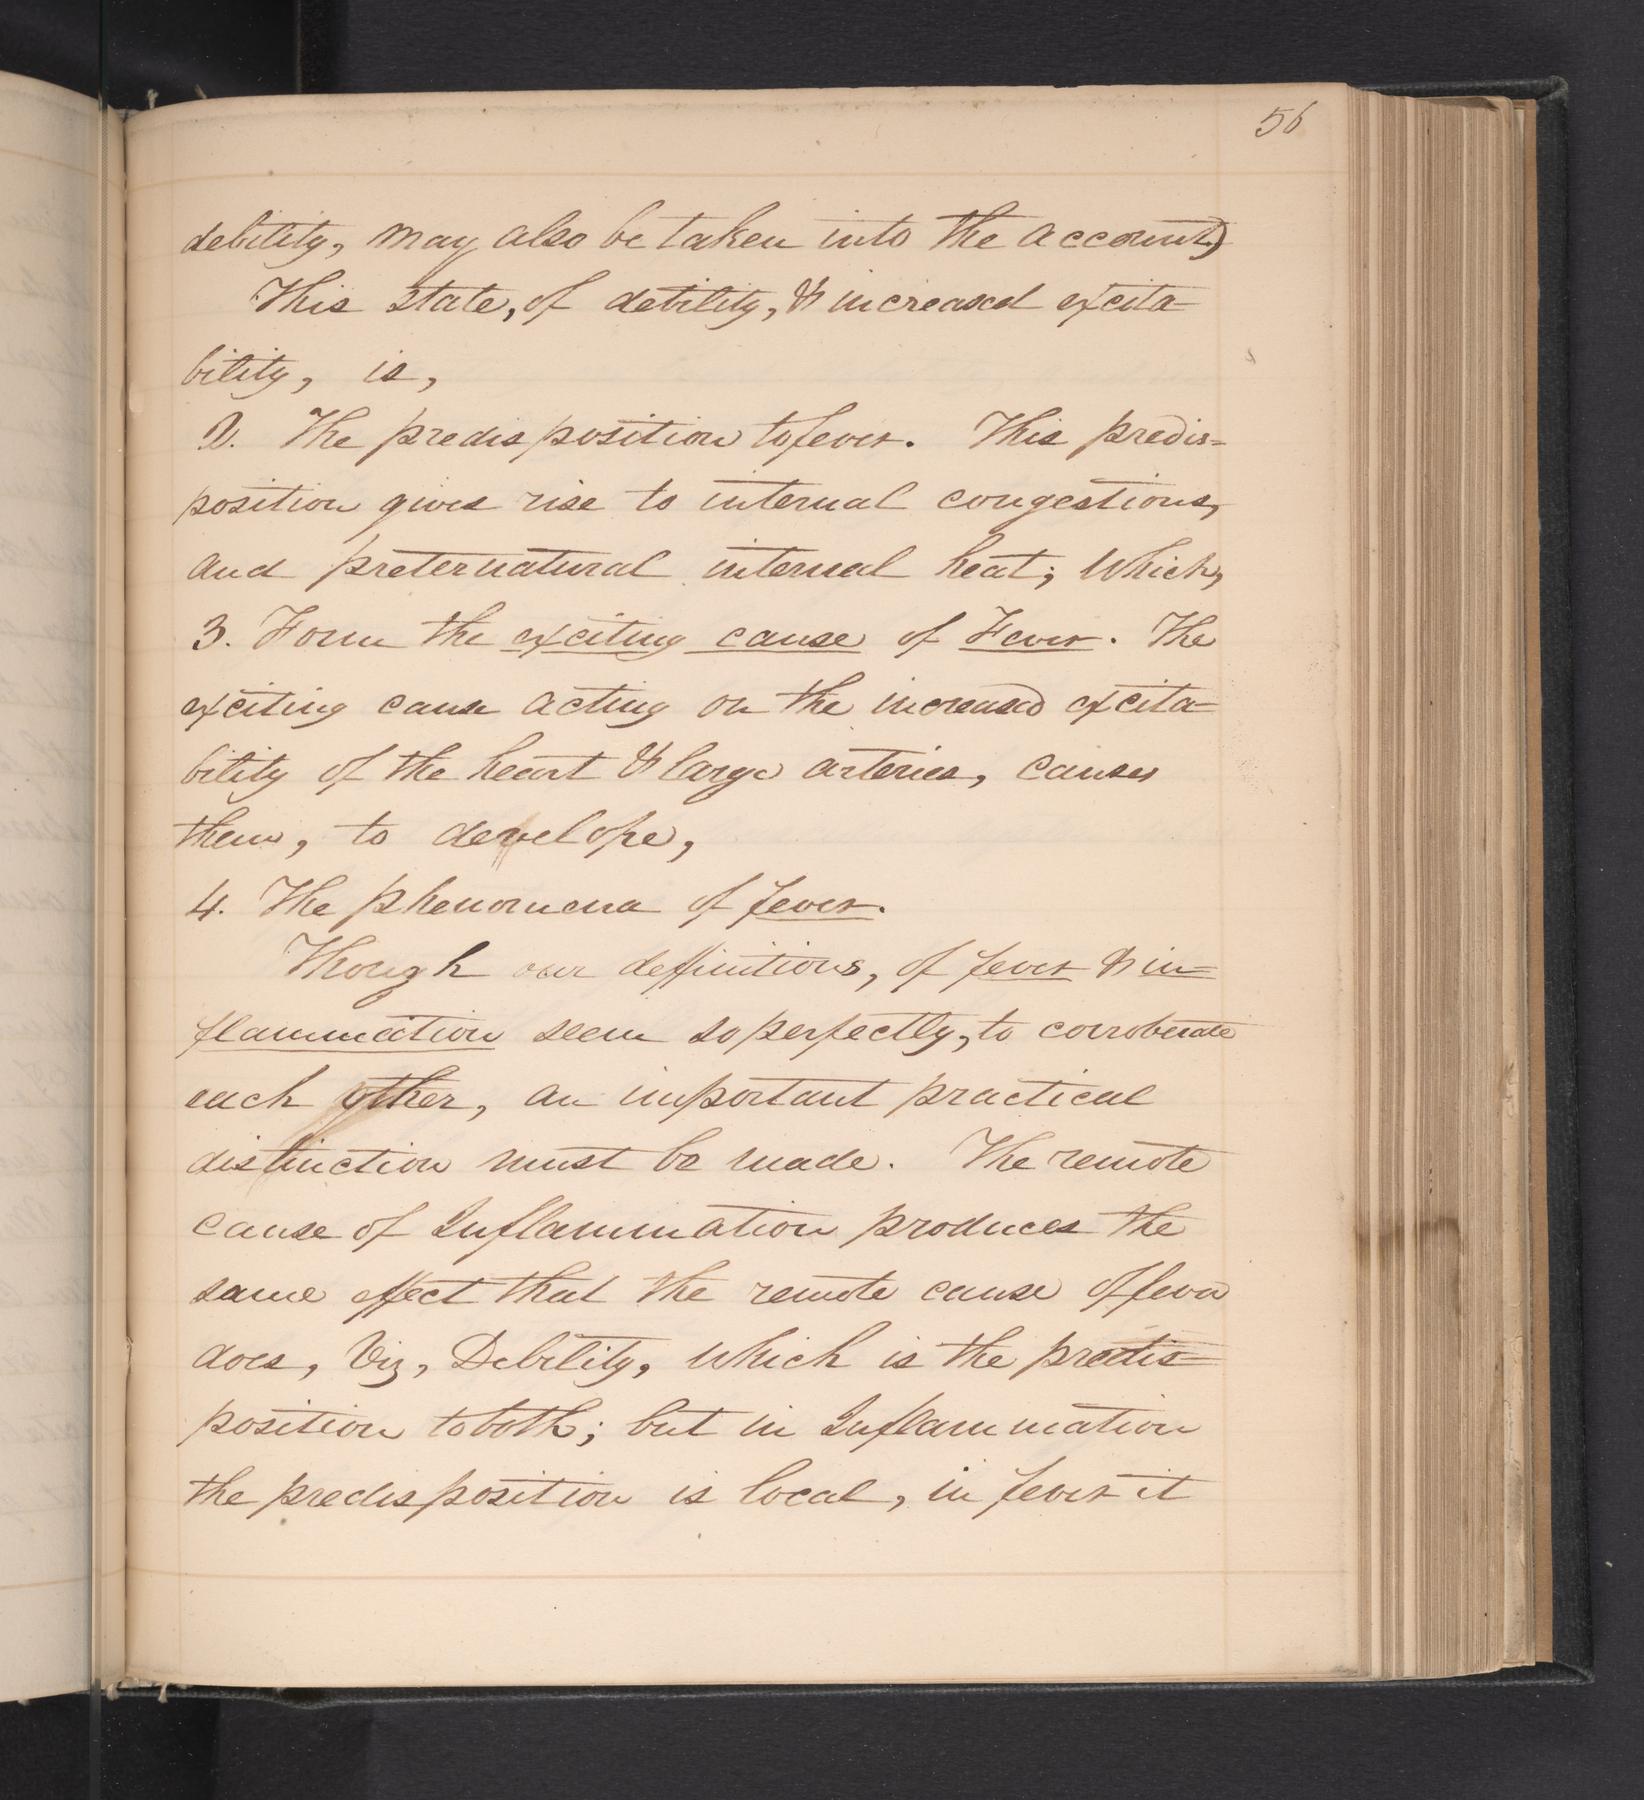 56
debility, may also be taken into the account)
This state, of debility, & increased excita-
bility, is,
2. The predisposition to fever. This predis=
position gives rise to internal congestions,
and preternatural internal heat; Which,
3. Form the exciting cause of Fever. The
exciting cause acting on the increased excita-
bility of the heart & large arteries, causes
them, to develope,
4. The phenomena of fever.
Though our deffinitions, of fever & in=
flammation seem so perfectly, to corroberate
each other, an important practical
distinction must be made. The remote
cause of Inflammation produces the
same effect that the remote cause of fever
does, Viz, Debility, which is the predis=
position to both; but in Inflammation
the predisposition is local, in fever it